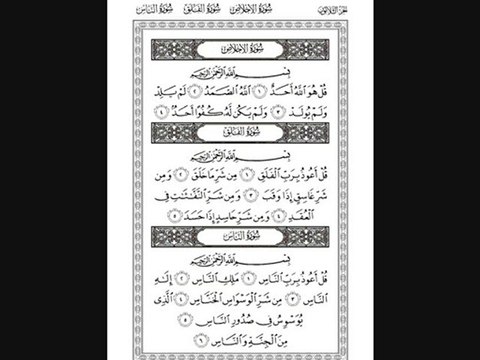 سُورَةُ النَّاسِ سُورَةُ الْفَلَقِ سُورَةُ الْإِخْلَاصِ الجزء الثلاثون
سُورَةُ الْإِخْلَاصِ
بِسْمِ اللَّهِ الرَّحْمَٰنِ الرَّحِيمِ
قُلْ هُوَ ٱللَّهُ أَحَدٌ ١ ٱللَّهُ ٱلصَّمَدُ ٢ لَمْ يَلِدْ
وَلَمْ يُولَدْ ٣ وَلَمْ يَكُن لَّهُۥ كُفُوًا أَحَدٌۢ ٤
سُورَةُ الْفَلَقِ
بِسْمِ اللَّهِ الرَّحْمَٰنِ الرَّحِيمِ
قُلْ أَعُوذُ بِرَبِّ ٱلْفَلَقِ ١ مِن شَرِّ مَا خَلَقَ ٢ وَمِن
شَرِّ غَاسِقٍ إِذَا وَقَبَ ٣ وَمِن شَرِّ ٱلنَّفَّٰثَٰتِ فِى
ٱلْعُقَدِ ٤ وَمِن شَرِّ حَاسِدٍ إِذَا حَسَدَ ٥
سُورَةُ النَّاسِ
بِسْمِ اللَّهِ الرَّحْمَٰنِ الرَّحِيمِ
قُلْ أَعُوذُ بِرَبِّ ٱلنَّاسِ ١ مَلِكِ ٱلنَّاسِ ٢ إِلَٰهِ
ٱلنَّاسِ ٣ مِن شَرِّ ٱلْوَسْوَاسِ ٱلْخَنَّاسِ ٤ ٱلَّذِى
يُوَسْوِسُ فِى صُدُورِ ٱلنَّاسِ ٥
مِنَ ٱلْجِنَّةِ وَٱلنَّاسِ ٦